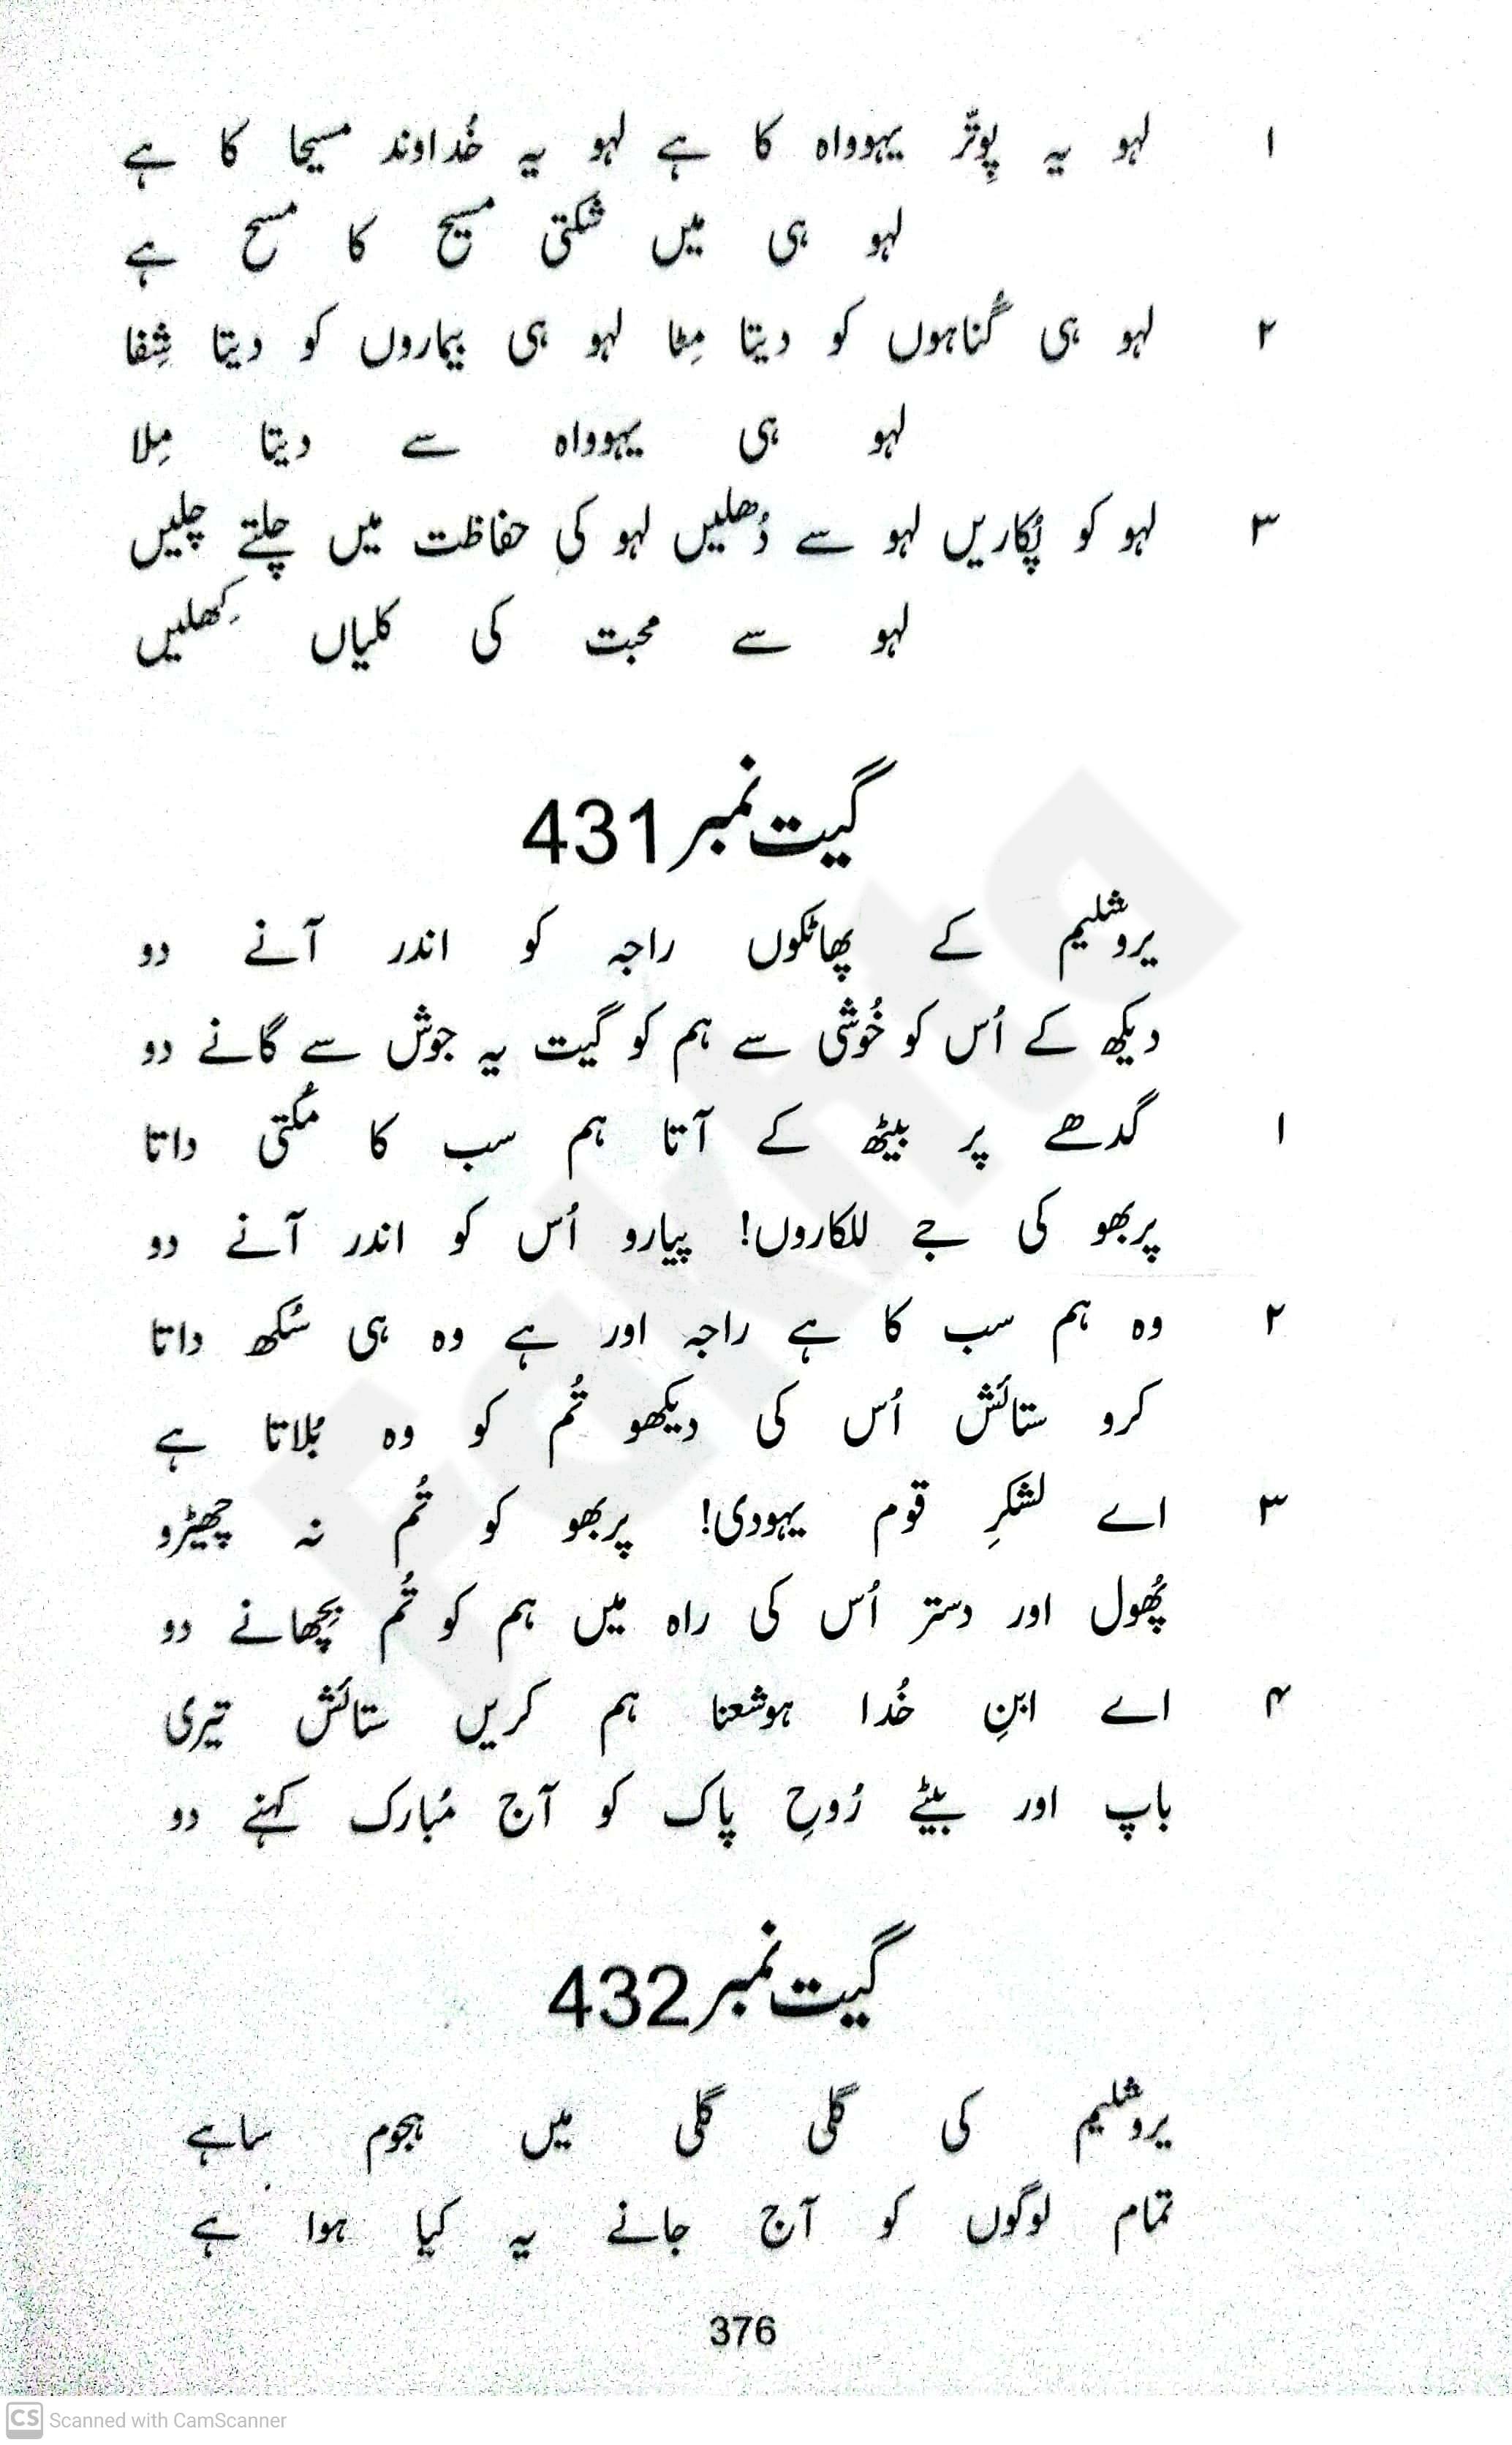 ۱ لہو یہ پوِتّر یہوواہ کا ہے لہو یہ خُداوند مسیحا کا ہے
لہو ہی میں شکتی مسیح کا مسح ہے
۲ لہو ہی گُناہوں کو دیتا مِٹا لہو ہی بیماروں کو دیتا شِفا
لہو ہی یہوواہ سے دیتا مِلا
۳ لہو کو پُکاریں لہو سے دُھلیں لہو کی حفاظت میں چلتے چلیں
لہو سے محبت کی کلیاں کِھلیں
گیت نمبر 431
یروشلیم کے پھاٹکوں راجہ کو اندر آنے دو
دیکھ کے اُس کو خُوشی سے ہم کو گیت یہ جوش سے گانے دو
۱ گدھے پر بیٹھ کے آتا ہم سب کا مُکتی داتا
پربھو کی جے للکاروں! پیارو اُس کو اندر آنے دو
۲ وہ ہم سب کا ہے راجہ اور ہے وہ ہی سُکھ داتا
کرو ستائش اُس کی دیکھو تُم کو وہ بُلاتا ہے
۳ اے لشکرِ قوم یہودی! پربھو کو تُم نہ چھیڑو
پُھول اور دستر اُس کی راہ میں ہم کو تُم بِچھانے دو
۴ اے ابنِ خُدا ہوشعنا ہم کریں ستائش تیری
باپ اور بیٹے رُوحِ پاک کو آج مُبارک کہنے دو
گیت نمبر 432
یروشلیم کی گلی گلی میں ہجوم ساہے
تمام لوگوں کو آج جانے یہ کیا ہوا ہے
376
CS Scanned with CamScanner